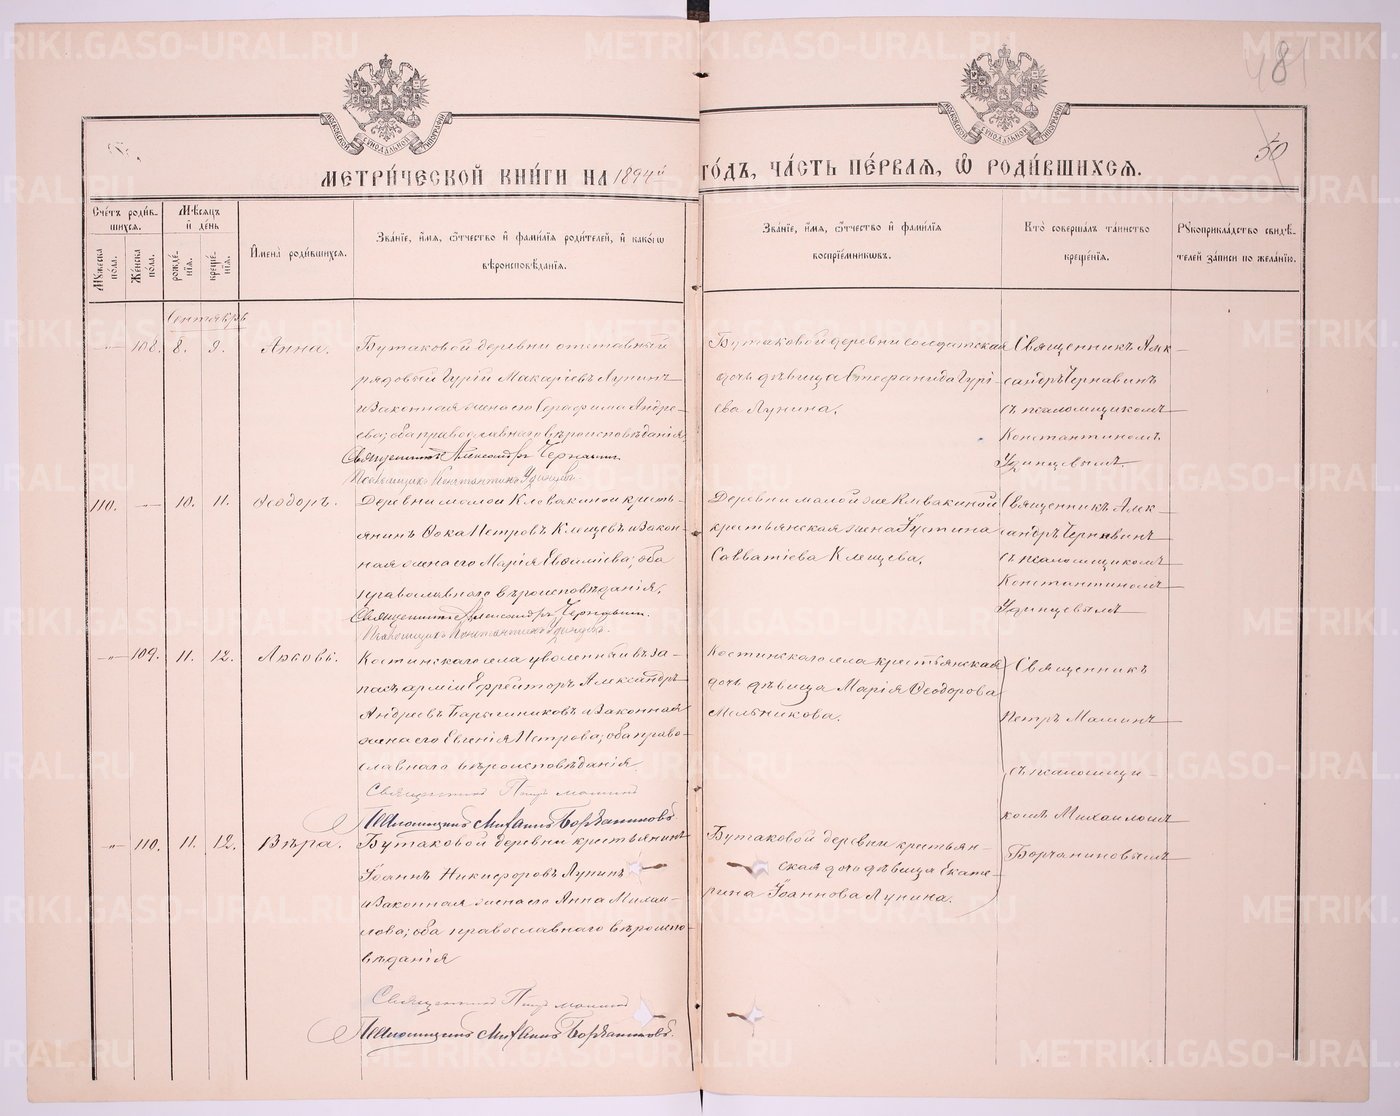 481
50
МЕТРИ́ЧЕСКОЙ КНИ́ГИ НА 1894й ГО́ДЪ, ЧА́СТЬ ПЕ́РВАЯ, Ѡ҆ РОДИ́ВШИХСЯ.
Сче́тъ роди́в-
шихся.
Мѣ́сяцъ
и҆ де́нь
Мꙋ́жеска
по́ла.
Же́нска
по́ла.
рожде́-
нїя.
креще́-
нїя.
И҆мена̀ роди́вшихся.
Зва́нїе, и҆́мя, ѻ҆́тчество и҆ фами́лїя роди́телей, и҆ како́гѡ
вѣроисповѣ́данїя.
Зва́нїе, и҆́мя, ѻ҆́тчество и҆ фами́лїя
воспрїе́мникѡвъ.
Кто̀ соверша́лъ та́инство
креще́нїя.
Рꙋкоприкла́дство свидѣ́-
телей за́писи по жела́нїю.
Сентябрь
-"- 108. 8. 9. Анна.
Бутаковой деревни отставный
рядовый Гурій Макаріевъ Лунинъ
и законная жена его Серафима Андре-
ева; оба православнаго вѣроисповѣданія.
Священникъ Александръ Чернавинъ
Псаломщикъ Константинъ Удинцевъ.
Бутаковой деревни солдатская
дочь дѣвица Стефанида Гурі-
ева Лунина.
Священникъ Алек-
сандръ Чернавинъ
съ псаломщикомъ
Константиномъ
Удинцевымъ.
110. -"- 10. 11. Ѳеодоръ.
Деревни малой Клевакиной кресть-
янинъ Ѳока Петровъ Клещевъ и закон-
ная жена его Марія Евѳиміева; оба
православнаго вѣроисповѣданія.
Священникъ Александръ Чернавинъ.
Псаломщикъ Константинъ Удинцевъ.
Деревни малой же Клевакиной
крестьянская жена Іустина
Савватіева Клещева.
Священникъ Алек-
сандръ Чернавинъ
съ псаломщикомъ
Константиномъ
Удинцевымъ
-"- 109. 11. 12. Любовь.
Костинскаго села уволенный въ за-
пасъ арміи Ефрейторъ Александръ
Андреевъ Барышниковъ и законная
жена его Евгенія Петрова; оба право-
славнаго вѣроисповѣданія.
Священникъ Петръ Маминъ
Псаломщикъ Михаилъ Борчаниновъ
Костинскаго села крестьянская
дочь дѣвица Марія Ѳеодорова
Мельникова.
Священникъ
Петръ Маминъ
съ псаломщи-
комъ Михаиломъ
Борчаниновымъ
-"- 110. 11. 12. Вѣра.
Бутаковой деревни крестьянинъ
Іоаннъ Никифоровъ Лунинъ
и законная жена его Анна Михаи-
лова; оба православнаго вѣроиспо-
вѣданія
Священникъ Петръ Маминъ
Псаломщикъ Михаилъ Борчаниновъ.
Бутаковой деревни крестьян-
ская дочь дѣвица Екате-
рина Іоаннова Лунина.
METRIKI.GASO-URAL.RU